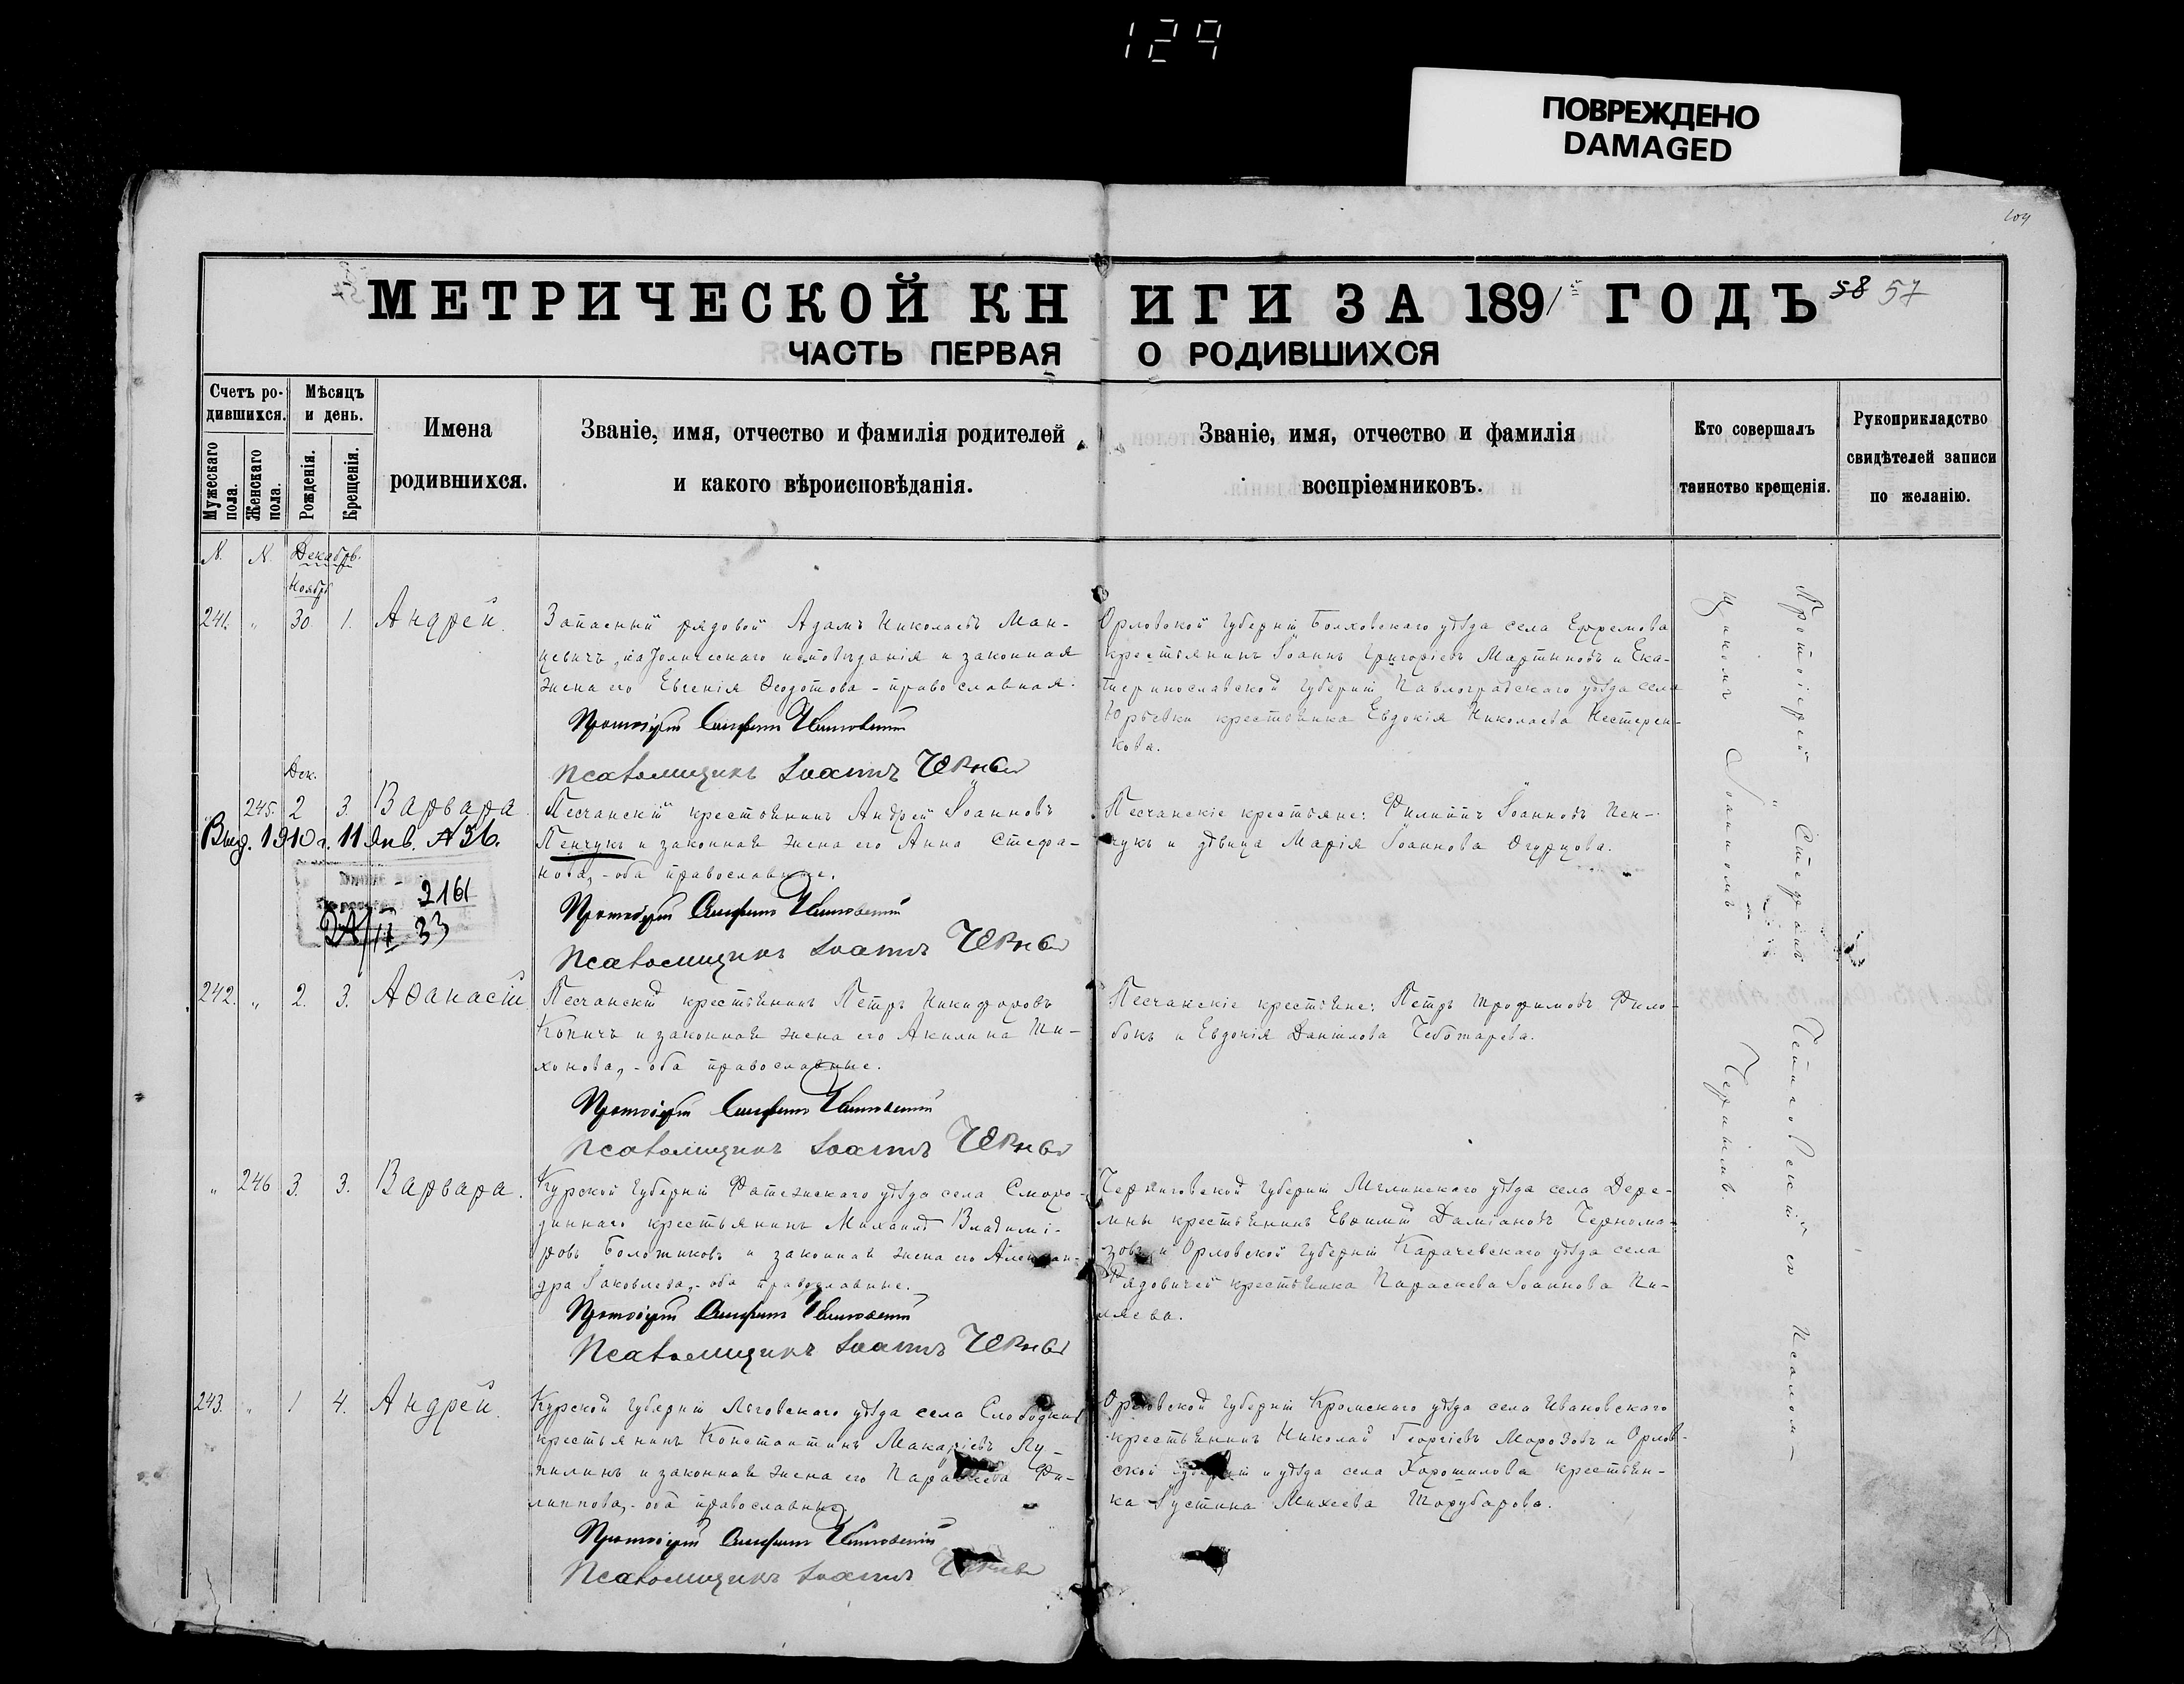 129
ПОВРЕЖДЕНО
DAMAGED
МЕТРИЧЕСКОЙ КНИГИ ЗА 1891 ГОДЪ 58 57
ЧАСТЬ ПЕРВАЯ О РОДИВШИХСЯ
Счетъ родившихся.
Мужескаго пола.
Женскаго пола.
Мѣсяцъ и день.
Рожденія.
Крещенія.
Имена
родившихся.
Званіе, имя, отчество и фамилія родителей
и какого вѣроисповѣданія.
Званіе, имя, отчество и фамилія
воспріемниковъ.
Кто совершалъ
таинство крещенія.
Рукоприкладство
свидѣтелей записи
по желанію.
N. N. Декабрь.
Ноябр
241. " 30 1. Андрей.
Запасный рядовой Адамъ Николаевъ Ман-
цевичъ, католическаго исповѣданія и законная
жена его Евгенія Ѳеодотова - православная.
Протоіерей Стефанъ
Псаломщикъ Іоаннъ Черный
Орловской губерніи Болховскаго уѣзда села Ефремова
крестьянинъ Іоаннъ Григоріевъ Мартыновъ и Ека-
теринославской губерніи Павлоградскаго уѣзда села
Юрьевки крестьянка Евдокія Николаева Нестерен-
кова.
Дек.
245. 2 3. Варвара
Выд. 1910 г. 11 Янв. №36.
2161
33
Песчанскій крестьянинъ Андрей Іоанновъ
Пенчукъ и законная жена его Анна Стефа-
нова, - оба православные.
Протоіерей Стефанъ
Псаломщикъ Іоаннъ Черный
Песчанскіе крестьяне: Филиппъ Іоанновъ Пен-
чукъ и дѣвица Марія Іоаннова Огурцова.
242. " 2. 3. Аѳанасій
Песчанскій крестьянинъ Петръ Никифоровъ
Копичъ и законная жена его Акилина Ти-
хонова, - оба православные.
Протоіерей Стефанъ
Псаломщикъ Іоаннъ Черный
Песчанскіе крестьяне: Петръ Трофимовъ Фило-
бокъ и Евдокія Даніилова Чеботарева.
" 246 3. 3. Варвара.
Курской губерніи Фатежскаго уѣзда села Сморо-
диннаго крестьянинъ Михаилъ Владимі-
ровъ Болотиковъ и законная жена его Алексан-
дра Іаковлева, - оба православные.
Протоіерей Стефанъ
Псаломщикъ Іоаннъ Черный
Черниговской губерніи Мглинскаго уѣзда села Дере-
мны крестьянинъ Евѳимій Даміановъ Черномазовъ
и Орловской губерніи Карачевскаго уѣзда села
Рядовичей крестьянка Параскева Іоаннова Пи-
ляева.
243. " 1 4. Андрей.
Курской губерніи Льговскаго уѣзда села Слободки
крестьянинъ Константинъ Макаріевъ Лу-
пилинъ и законная жена его Параскева Фи-
липпова, - оба православные.
Протоіерей Стефанъ
Псаломщикъ Іоаннъ Черный
Орловской губерніи Кромскаго уѣзда села Ивановскаго
крестьянинъ Николай Георгіевъ Морозовъ и Орлов-
ской губерніи и уѣзда села Хорошилова крестьян-
ка Іустина Михеева Шорубарова.
Протоіерей Стефанъ съ псалом-
щикомъ Іоанномъ Чернымъ.